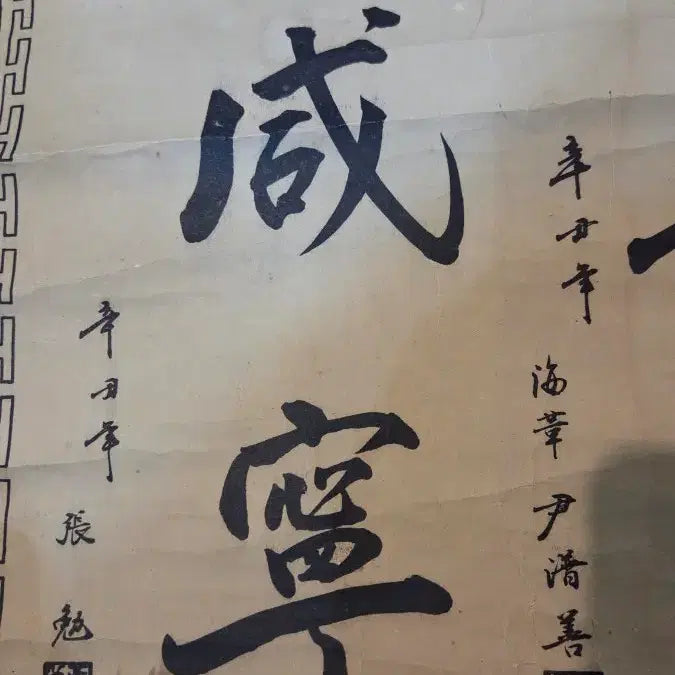 辛丑年 海葦 尹潽善
咸寧
辛丑年 張勉